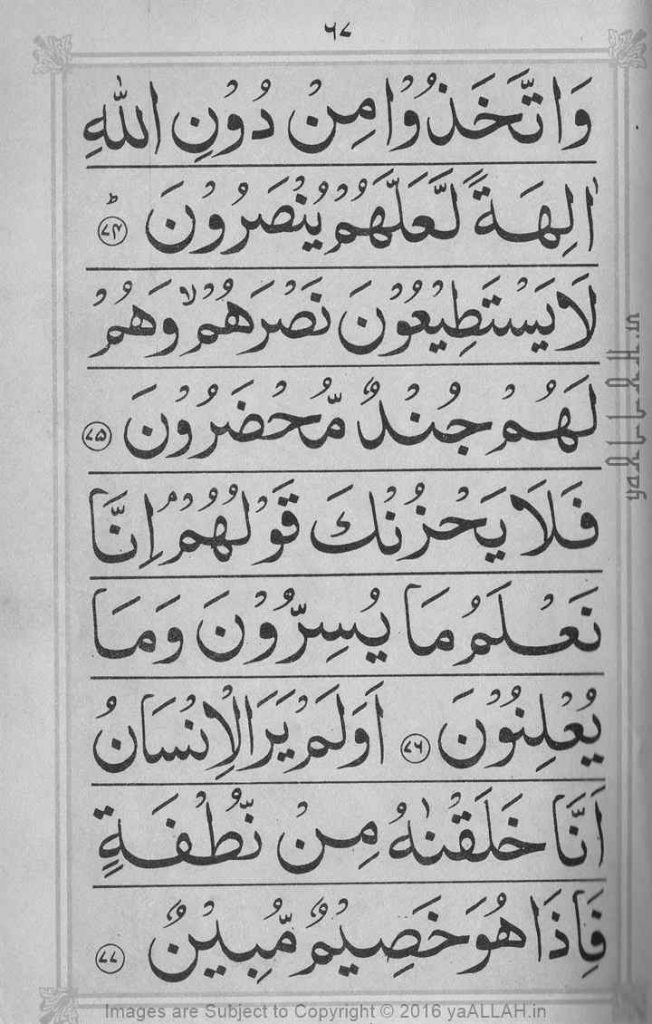 ٦٧
وَاتَّخَذُوْا مِنْ دُوْنِ اللّٰهِ
اٰلِهَةً لَّعَلَّهُمْ يُنْصَرُوْنَ ؕ ﴿۷۴﴾
لَا يَسْتَطِيْعُوْنَ نَصْرَهُمْ ۙ وَهُمْ
لَهُمْ جُنْدٌ مُّحْضَرُوْنَ ﴿۷۵﴾
فَلَا يَحْزُنْكَ قَوْلُهُمْ ۘ اِنَّا
نَعْلَمُ مَا يُسِرُّوْنَ وَمَا
يُعْلِنُوْنَ ﴿۷۶﴾ اَوَلَمْ يَرَ الْاِنْسَانُ
اَنَّا خَلَقْنٰهُ مِنْ نُّطْفَةٍ
فَاِذَا هُوَ خَصِيْمٌ مُّبِيْنٌ ﴿۷۷﴾
yaALLAH.in
Images are Subject to Copyright © 2016 yaALLAH.in